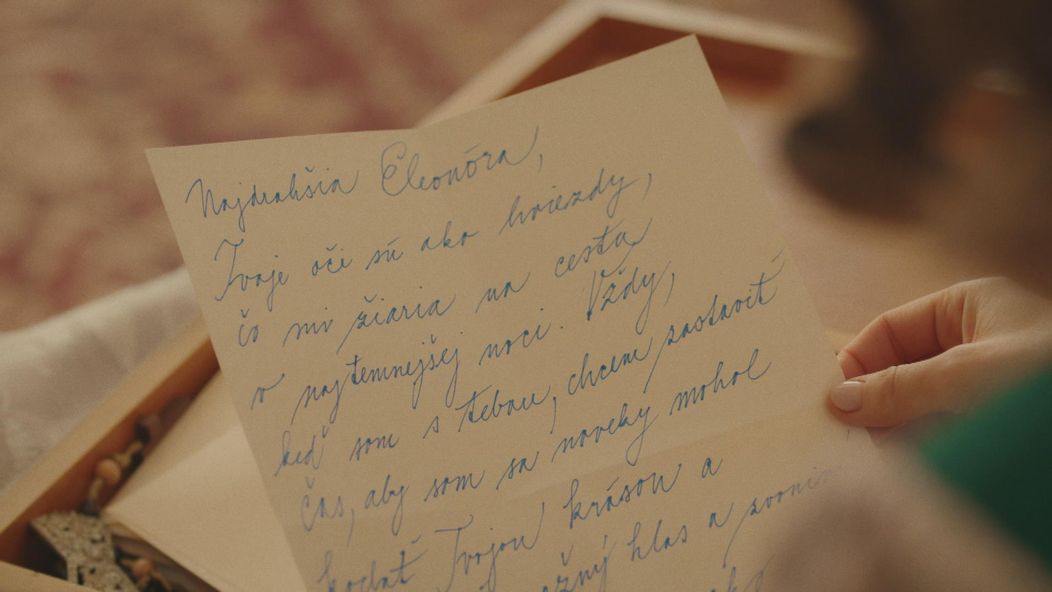 Najdrahšia Eleonóra,
Tvoje oči sú ako hviezdy,
čo mi žiaria na cestu
v najtemnejšej noci. Vždy,
keď som s tebou, chcem zastaviť
čas, aby som sa naveky mohol
kochať Tvojou krásou a
hlas a